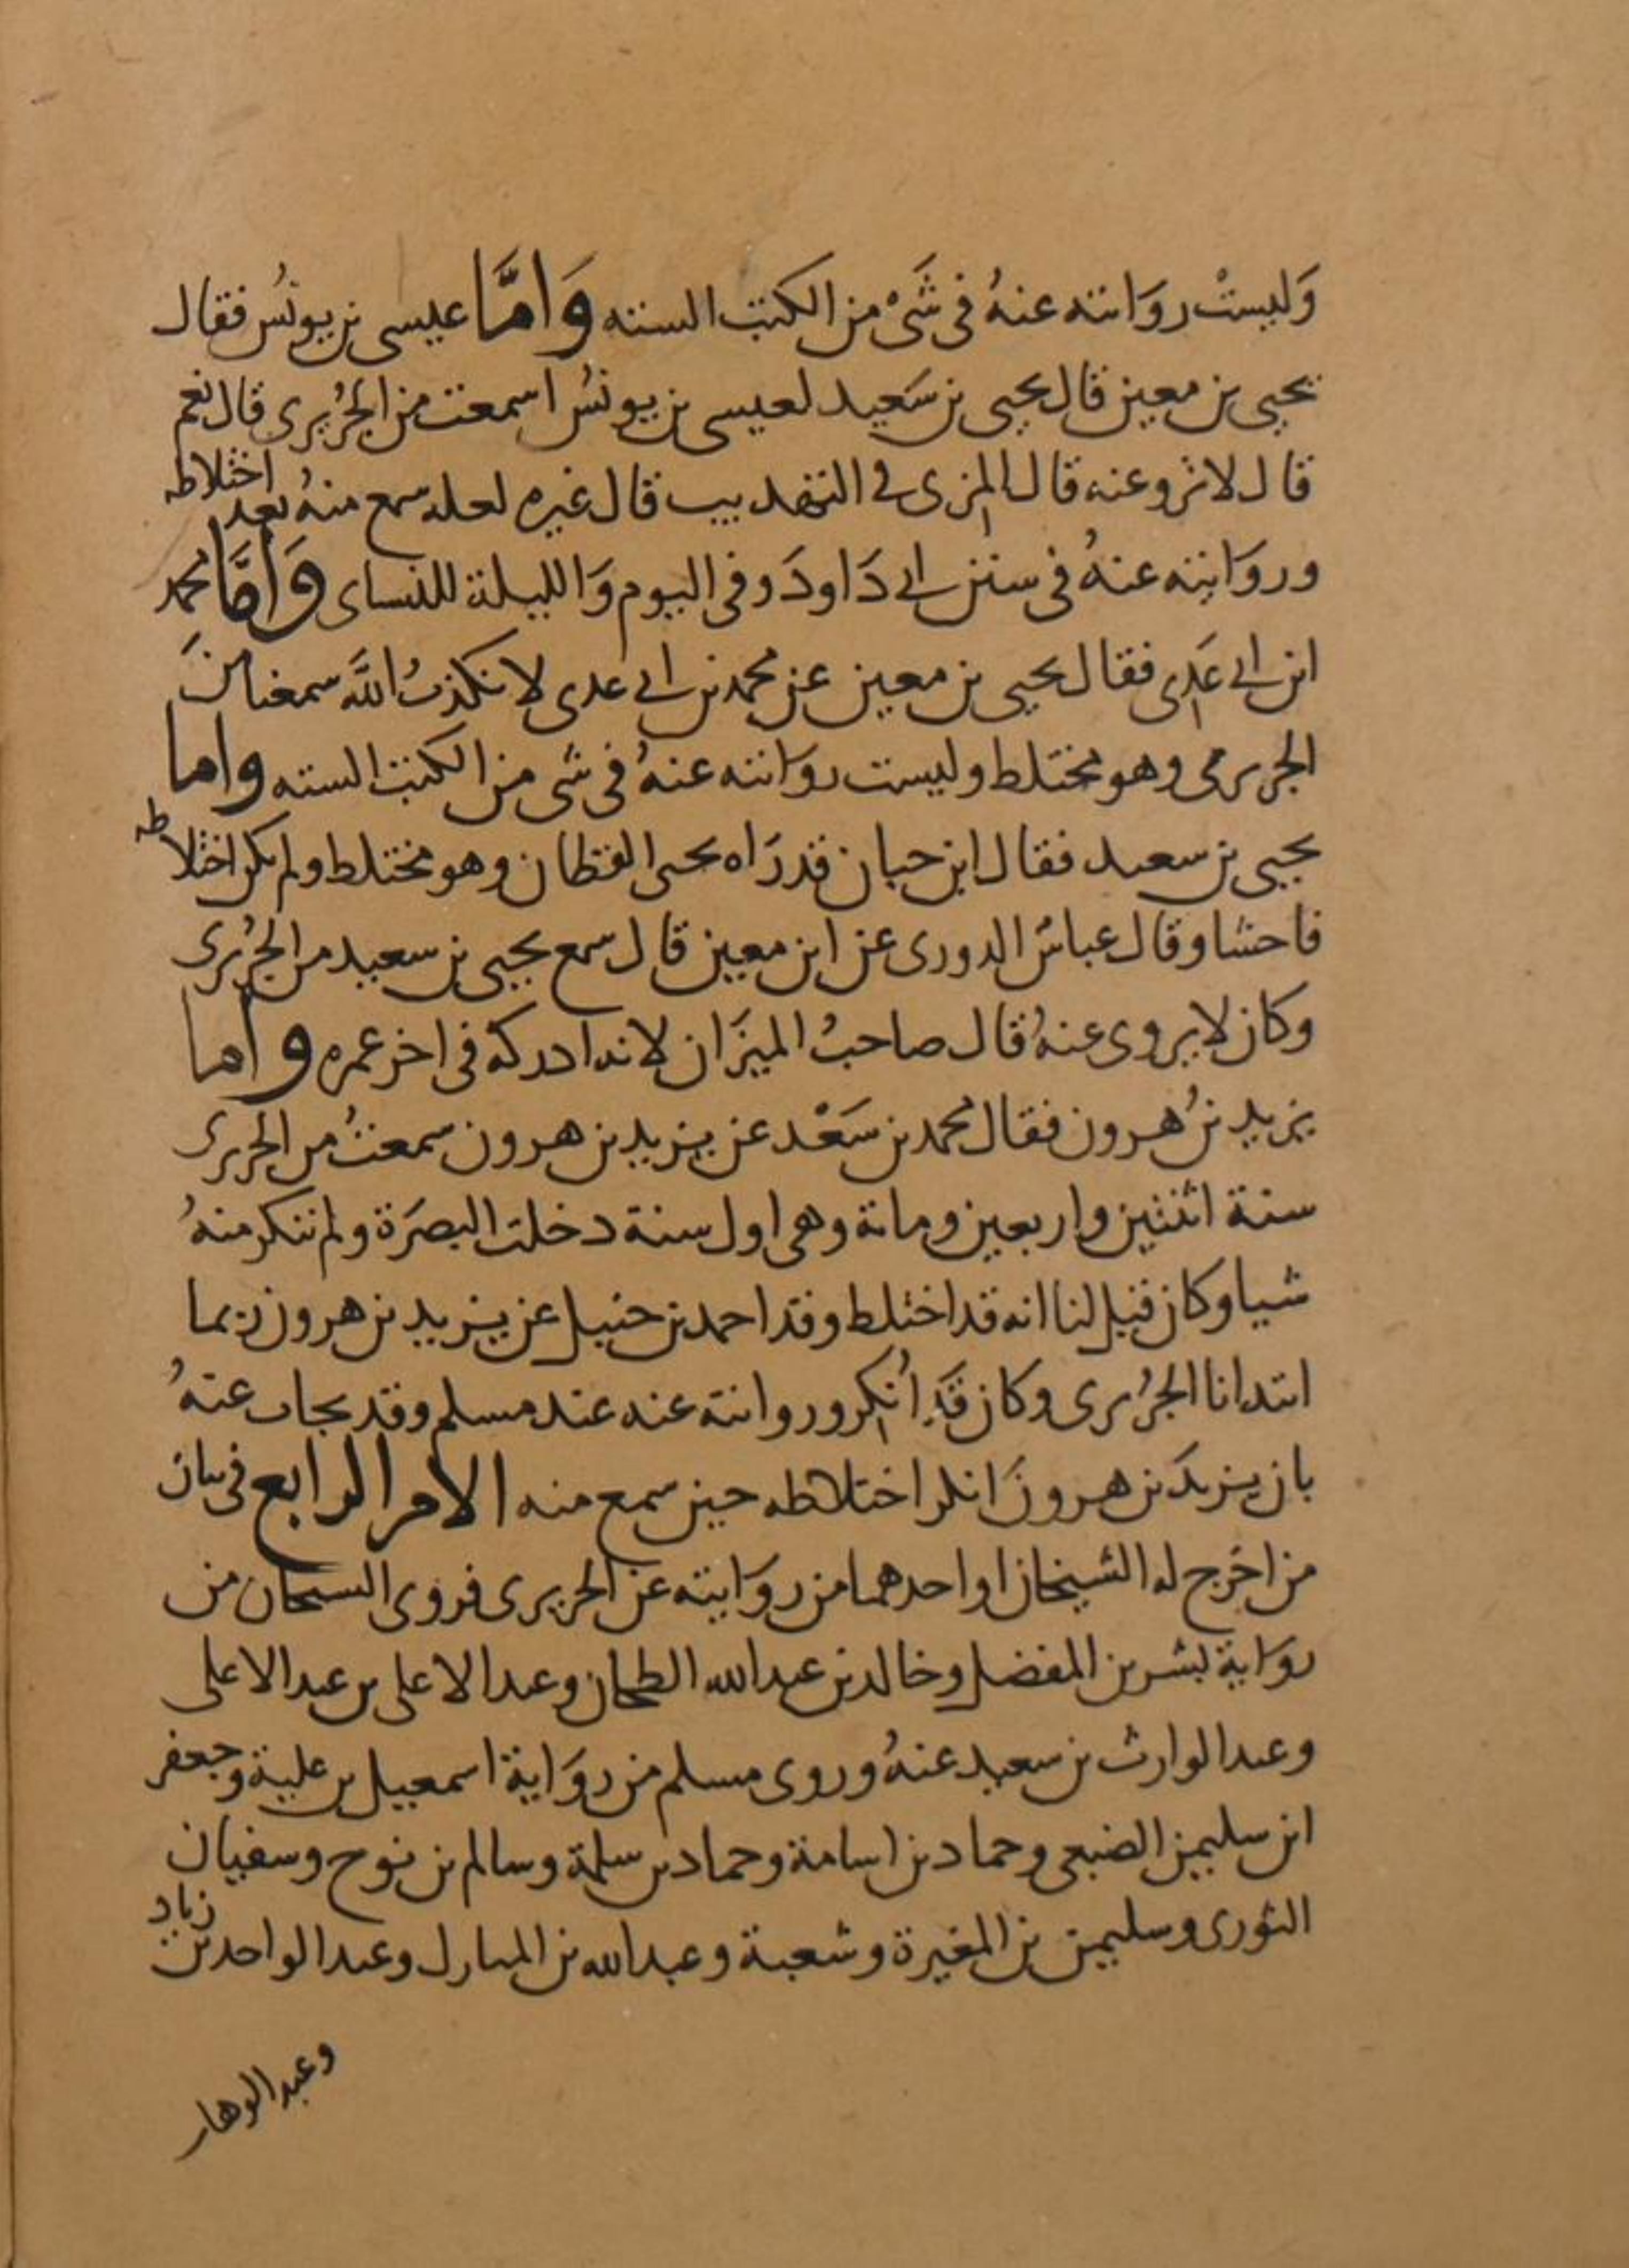 وَليستْ روَايته عنهُ فى شَىْ من الكتب الستة وَامَّا عيسى بن يونُس فقال
يحيى بن معين قال يحيى بن سَعيد لعيسى بن يونسُ اسمعت من الجُريرى قال نعم
قال لا ترو عنه قال المزى فى التهذيب قال غيره لعله سمع منهُ بعد اختلاطه
وروَايته عنهُ فى سنن ابى دَاودَ وفى اليوم وَالليلة للنساى وَامَّا محمد
ابن ابى عَدِى فقال يحيى بن معين عن محمد بن ابى عدى لا نكذبُ اللَّه سمعنا منَ
الجريرى وهو مختلط وليست روَايته عنهُ فى شى من الكتب الستة واما
يحيى بن سعيد فقال ابن حبان قد رَاه يحيى القطان وهو مختلط ولم يكن اختلاطه
فاحشا وقال عباسُ الدورى عن ابن معين قال سمع يحيى بن سعيد من الجُريرى
وكان لا يروى عنهُ قال صاحبُ الميزَان لانه ادركه فى اخر عمره واما
يزيد بنُ هرون فقال محمد بن سَعْد عن يزيد بن هرون سمعتُ من الجريرى
سنة اثنتين واربعين وماىة وهى اول سنة دخلت البصَرة ولم ننكر منهُ
شيا وكان قيل لنا انه قد اختلط وقد احمد بن حنبل عن يزيد بن هرون ربما
ابتدانا الجُريرى وكان قَدِ اُنكِر وروايته عنه عند مسلم وقد يجاب عنهُ
بان يزيدَ بن هرونَ انكر اختلاطه حين سمع منه الامر الرابع فى بيان
من اخرج له الشيخان او احدهما من روَايته عن الجريرى فروى الشيخان من
روَاية بشر بن المفضل وخالد بن عبد الله الطحان وعبد الاعلى بن عبد الاعلى
وعبد الوارث بن سعيد عنهُ وروى مسلم من روَاية اسمعيل بن علية وجعفر
ابن سليمن الضبعى وحماد بن اسامة وحماد بن سلمة وسالم بن نوح وسفيان
الثورى وسليمن بن المغيرة وشعبة وعبد الله بن المبارك وعبد الواحد بن زياد
وعبد الوهاب